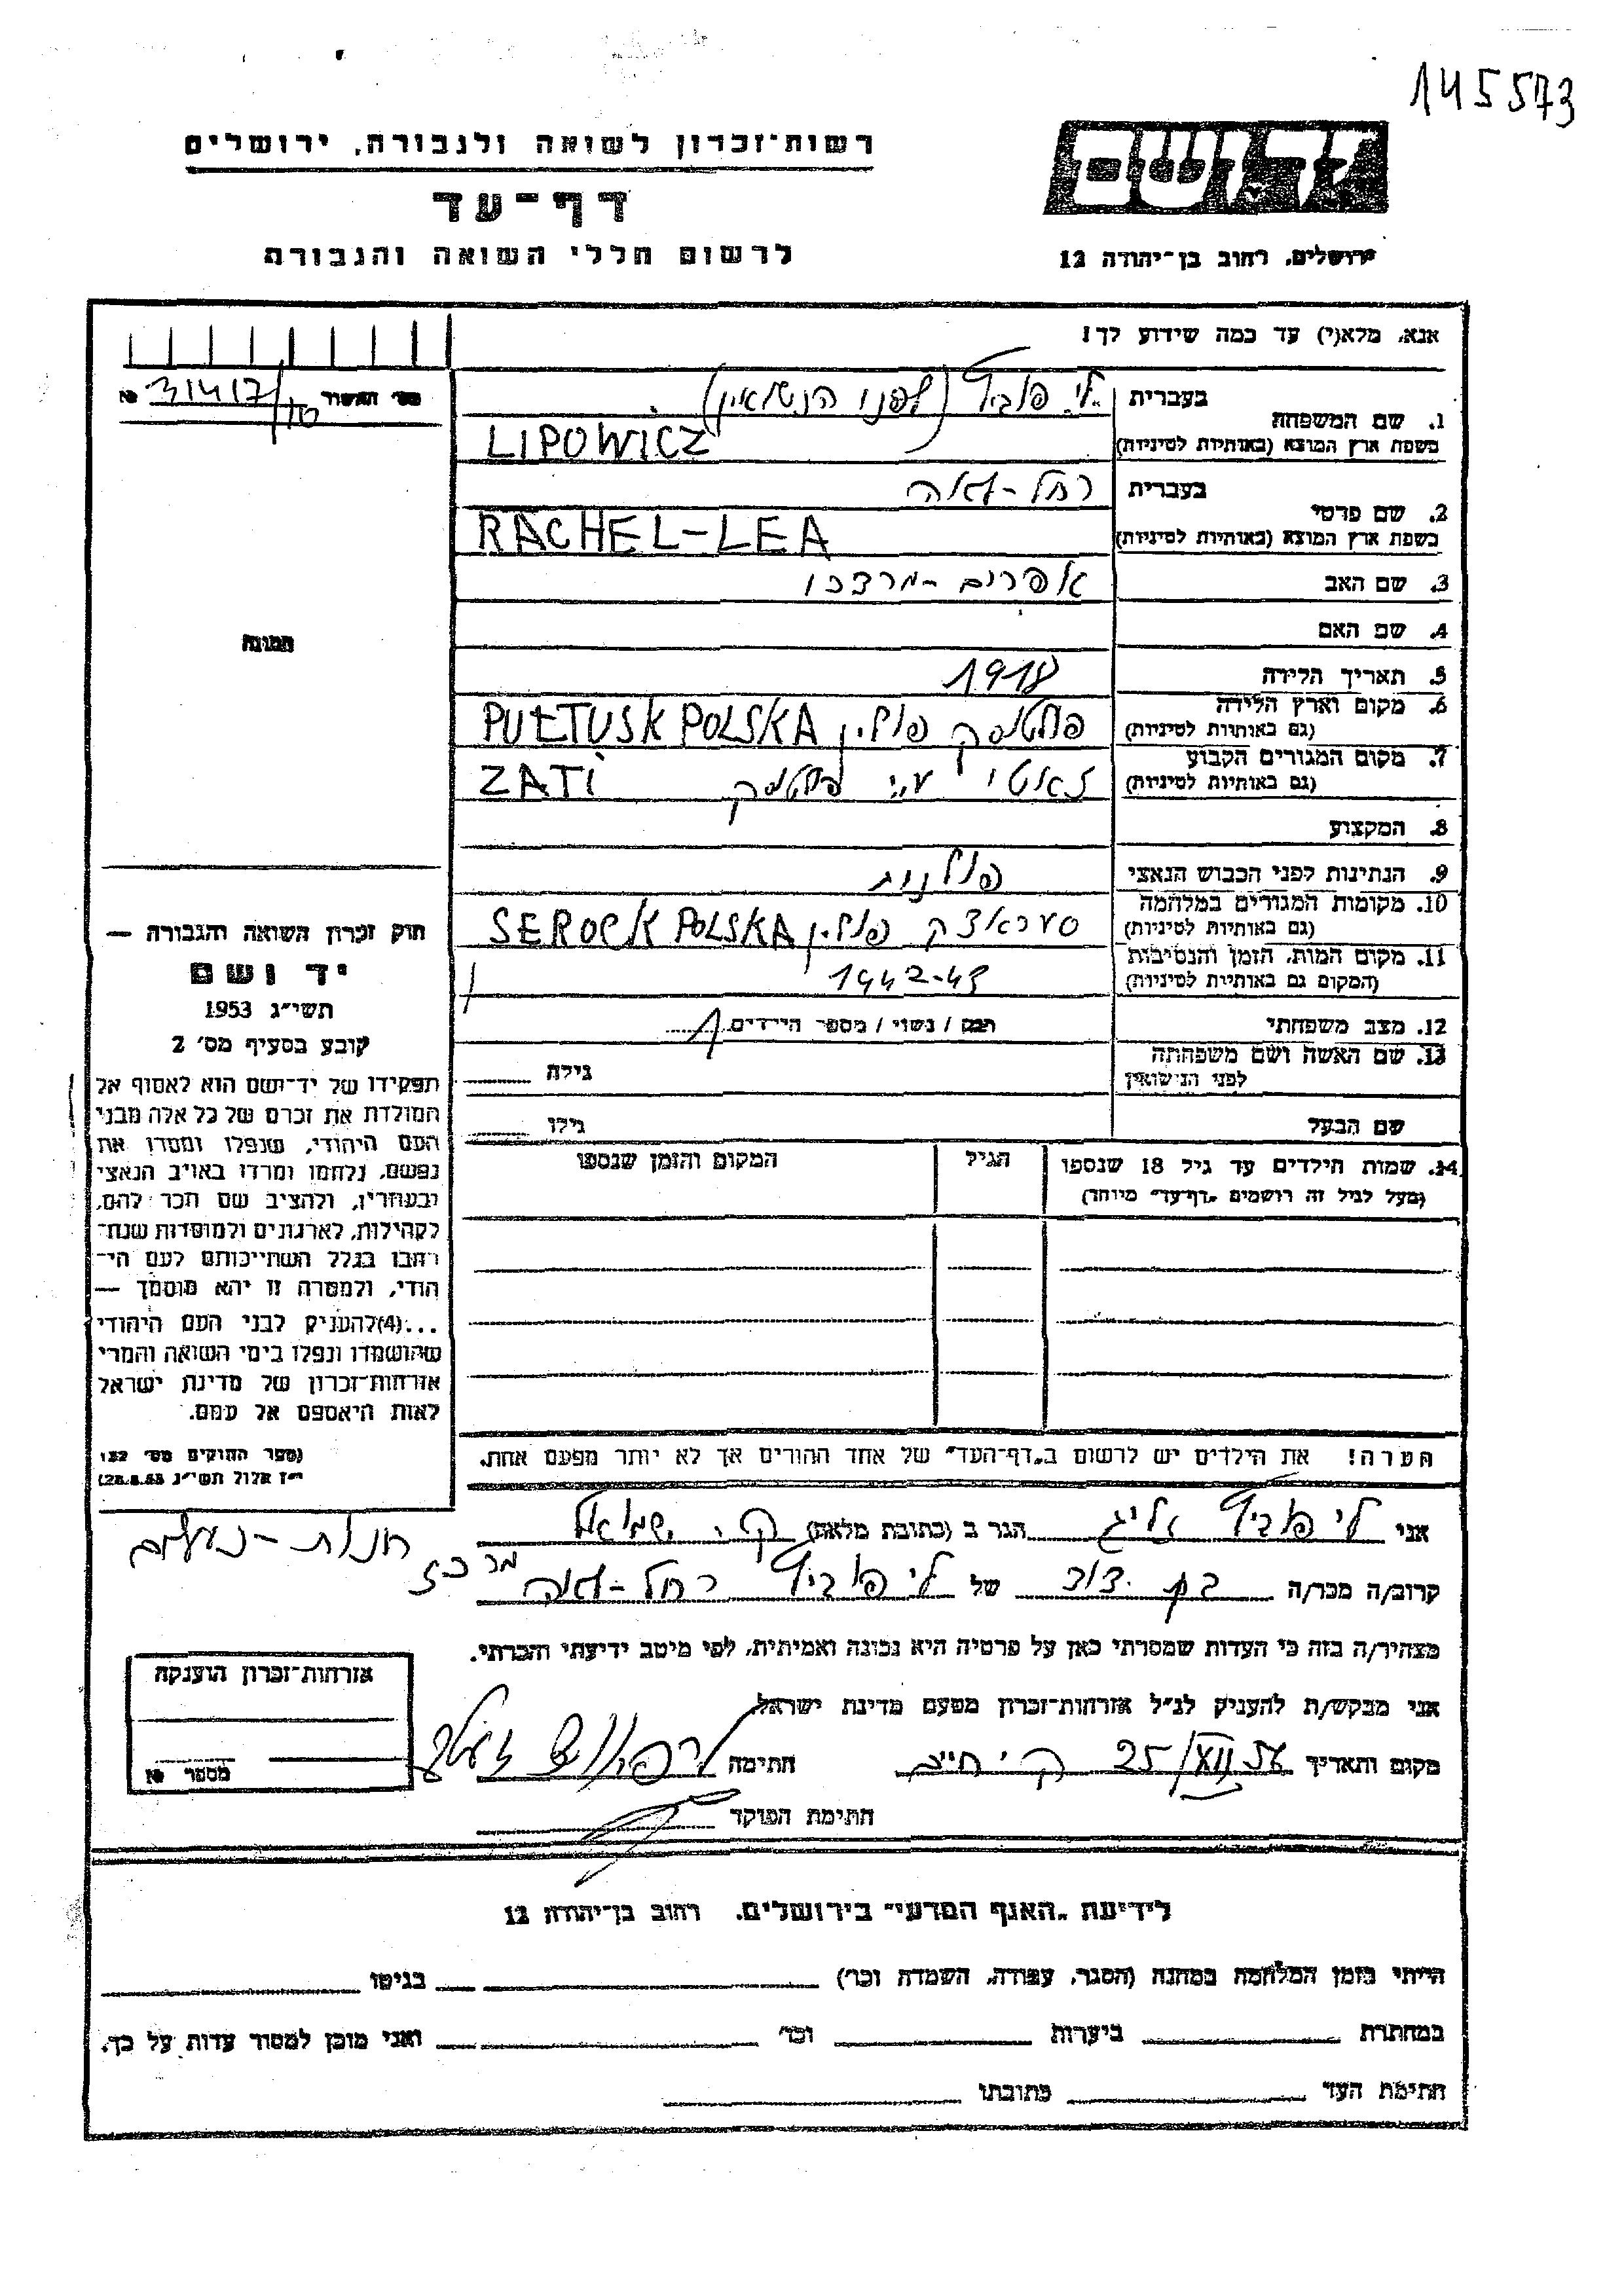 145573
רשות־זכרון לשואה ולגבורה, ירושלים
דף־עד
לרשום חללי השואה והגבורה
יד ושם
ירושלים, רחוב בן־יהודה 12
אנא, מלא(י) עד כמה שידוע לך!
מס׳ האשור № 31417/10
1. שם המשפחה בעברית ליפוביץ (לפני הנשואין)
בשפת ארץ המוצא (באותיות לטיניות) LIPOWICZ
2. שם פרטי בעברית רחל-לאה
בשפת ארץ המוצא (באותיות לטיניות) RACHEL-LEA
3. שם האב אפרים-מרדכי
4. שם האם
5. תאריך הלידה 1918
6. מקום וארץ הלידה (גם באותיות לטיניות) פולטוסק פולין PUŁTUSK POLSKA
7. מקום המגורים הקבוע (גם באותיות לטיניות) זאטי ע״י פולטוסק ZATI
8. המקצוע
9. הנתינות לפני הכבוש הנאצי פולנית
10. מקומות המגורים במלחמה (גם באותיות לטיניות) סעראצק פולין SEROCK POLSKA
11. מקום המות, הזמן והנסיבות (המקום גם באותיות לטיניות) 1942-43
12. מצב משפחתי רווק / נשוי / מספר הילדים 1
13. שם האשה ושם משפחתה לפני הנישואין גילה
שם הבעל גילו
14. שמות הילדים עד גיל 18 שנספו (מעל לגיל זה רושמים "דף־עד" מיוחד) הגיל המקום והזמן שנספו
הערה! את הילדים יש לרשום ב"דף־העד" של אחד ההורים אך לא יותר מפעם אחת.
תמונה
חוק זכרון השואה והגבורה —
יד ושם
תשי״ג 1953
קובע בסעיף מס׳ 2
תפקידו של יד־ושם הוא לאסוף אל
המולדת את זכרם של כל אלה מבני
העם היהודי, שנפלו ומסרו את
נפשם, נלחמו ומרדו באויב הנאצי
ובעוזריו, ולהציב שם וזכר להם,
לקהילות, לארגונים ולמוסדות שנח־
רבו בגלל השתייכותם לעם הי־
הודי, ולמטרה זו יהא מוסמך —
...(4)להעניק לבני העם היהודי
שהושמדו ונפלו בימי השואה והמרי
אזרחות־זכרון של מדינת ישראל
לאות היאספם אל עמם.
(ספר החוקים מס׳ 132
י״ז אלול תשי״ג 28.8.53)
אני ליפוביץ הגר ב (כתובת מלאה) ק. שמואל
חנות-נעלים מרכז
קרוב/ה מכר/ה בת דוד של ליפוביץ רחל-לאה
מצהיר/ה בזה כי העדות שמסרתי כאן על פרטיה היא נכונה ואמיתית, לפי מיטב ידיעתי והכרתי.
אני מבקש/ת להעניק לנ״ל אזרחות־זכרון מטעם מדינת ישראל.
מקום ותאריך 25/XII 56 ק. חיים חתימה
חתימת הפוקד
אזרחות־זכרון הוענקה
מספר №
לידיעת "האגף המדעי" בירושלים. רחוב בן־יהודה 12
הייתי בזמן המלחמה במחנה (הסגר, עבודה, השמדה וכו׳) בגיטו
במחתרת ביערות וכו׳ ואני מוכן למסור עדות על כך.
חתימת העד כתובתו